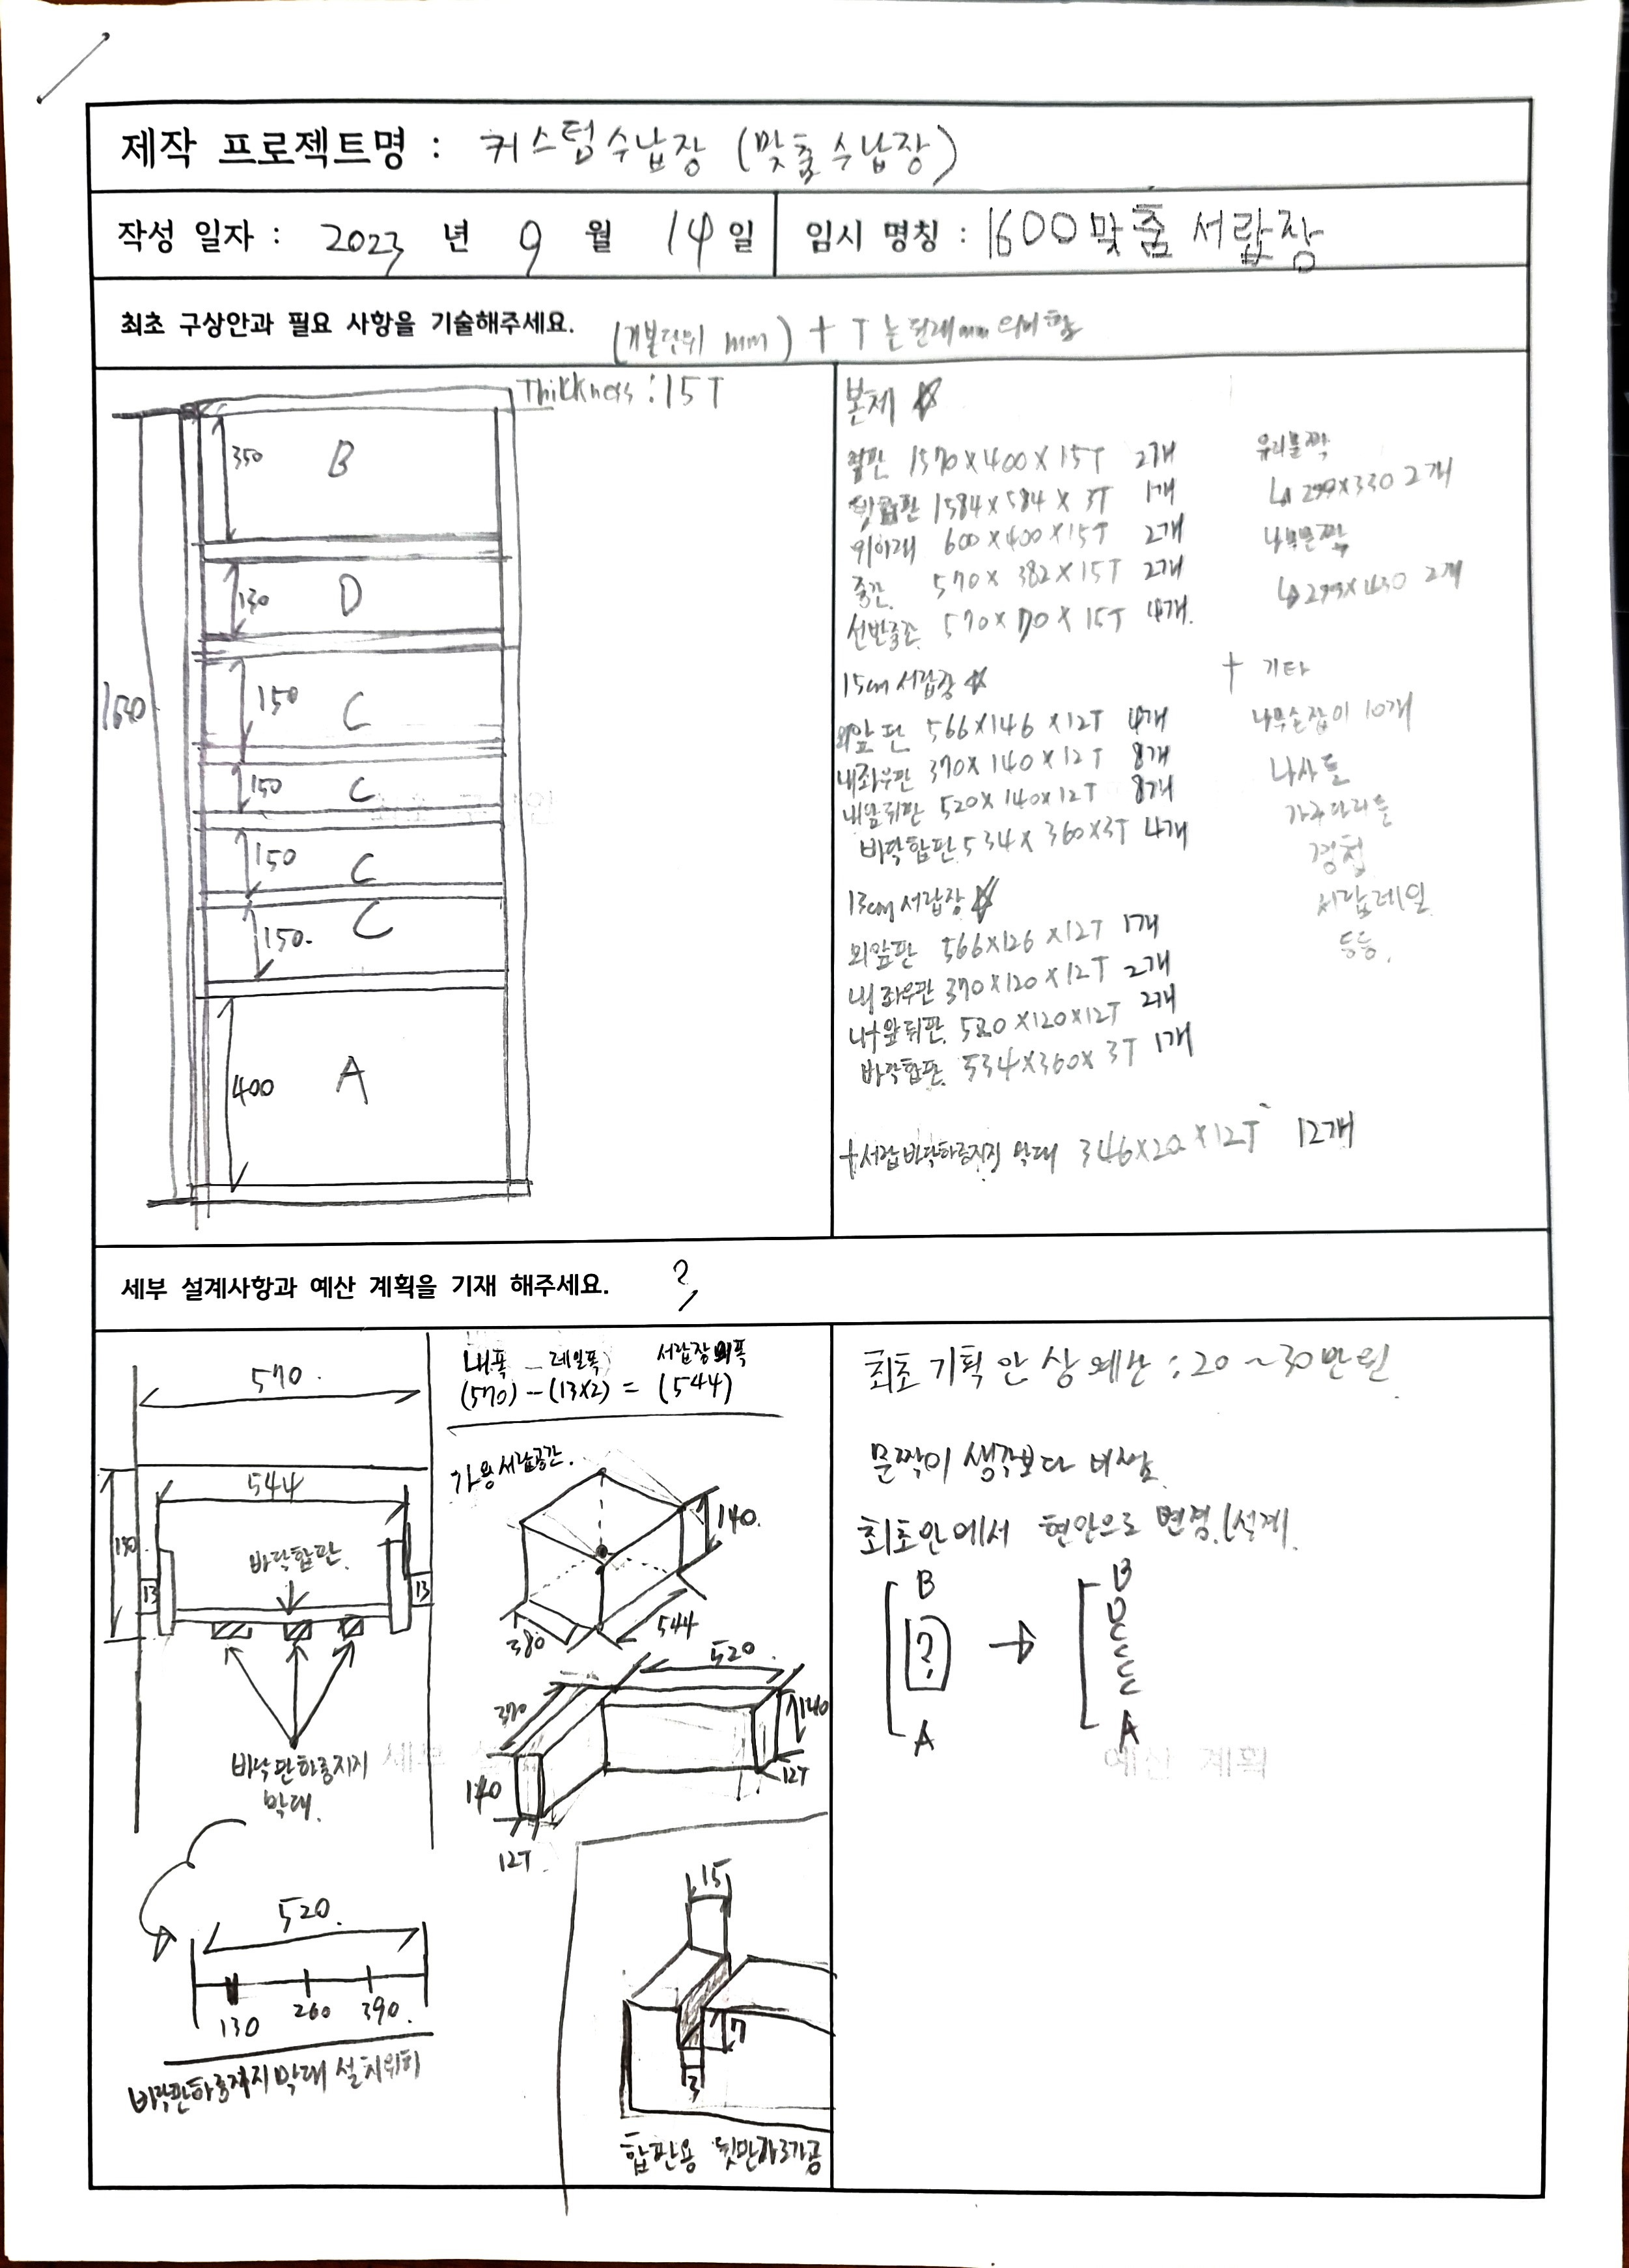 제작 프로젝트명 : 커스텀수납장 (맞춤 수납장)
작성 일자 : 2023 년 9 월 14 일
임시 명칭 : 1600 맞춤 서랍장
최초 구상안과 필요 사항을 기술해주세요. (기본단위 mm) + T 는 두께mm 의미함
Thikkness : 15T
350 B
130 D
150 C
150 C
150 C
150. C
400 A
본체 ☆
옆판 1570×400×15T 2개
뒷합판 1584×584×3T 1개
위아래 600×400×15T 2개
중간 570×382×15T 2개
선반중간 570×70×15T 4개.
유리문짝
↳ 299×330 2개
나무문짝
↳ 299×430 2개
15cm 서랍장 ☆
외앞판 566×146×12T 4개
내좌우판 370×140×12T 8개
내앞뒤판 520×140×12T 8개
바닥합판 534×360×3T 4개
13cm 서랍장 ☆
외앞판 566×126×12T 1개
내좌우판 370×120×12T 2개
내앞뒤판. 520×120×12T 2개
바닥합판. 534×360×3T 1개
+ 서랍바닥하중지지 막대 346×20×12T 12개
+ 기타
나무손잡이 10개
나사들
가구다리들
경첩
서랍레일
등등.
세부 설계사항과 예산 계획을 기재 해주세요. ?
570.
544
13
13
바닥합판.
바닥판하중지지
막대.
520.
130 260 390.
바닥판하중지지막대 설치위치
내폭 - 레일폭 서랍장외폭
(570) - (13×2) = (544)
가용서랍공간.
140.
380
544
520.
370
140
140
12T
12T.
15
7
3
합판용 뒷면가공
세부
최초 기획안 상 예산 : 20 ~ 30만원
문짝이 생각보다 비쌈.
최초안에서 현안으로 변경.(설계)
B
?
A
→
B
D
C
C
C
C
A
예산 계획